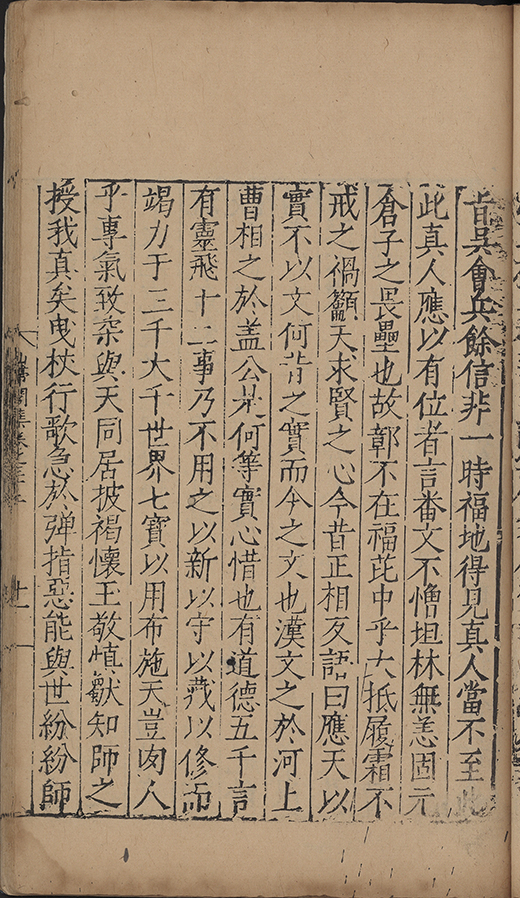 昔吳會兵餘信非一時福地得見真人當不至
此真人應以有位者言番文不憎坦林無恙固亢
倉子之畏壘也故鄣不在福茈中乎大抵履霜不
戒之禍籲天求賢之心今昔正相反語曰應天以
實不以文何昔之實而今之文也漢文之於河上
曹相之於盖公是何等實心惜也有道德五千言
有靈飛十二事乃不用之以新以守以義以修而
竭力于三千大千世界七寶以用布施天豈囱人
乎專氣致柔與天同居披褐懷玉敬慎猷知師之
授我真矣曳杖行歌急於弹指惡能與世紛紛師